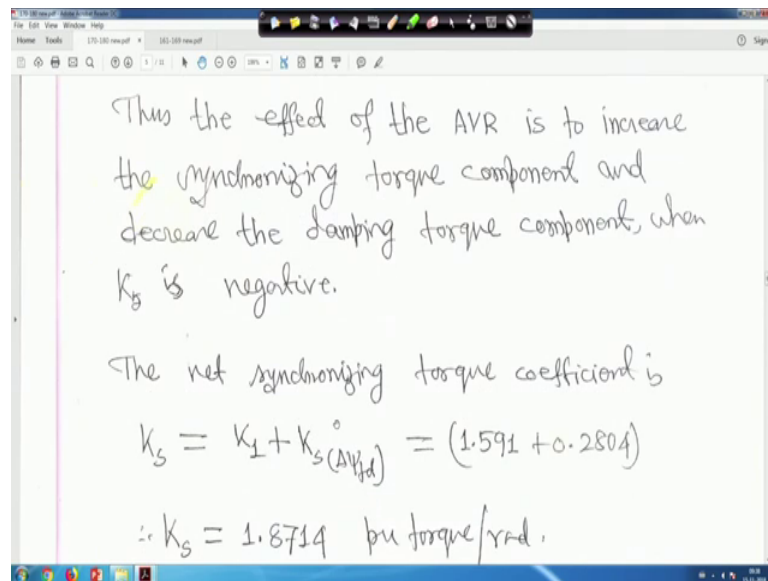 170-180 new.pdf - Adobe Acrobat Reader DC
File Edit View Window Help
Home Tools 170-180 new.pdf × 161-169 new.pdf Sign
Thus the effect of the AVR is to increase
the synchronizing torque component and
decrease the damping torque component, when
K₅ is negative.
The net synchronizing torque coefficient is
K_S = K_1 + K_S(Δψ_fd) = (1.591 + 0.2804)
∴ K_S = 1.8714 pu torque/rad.